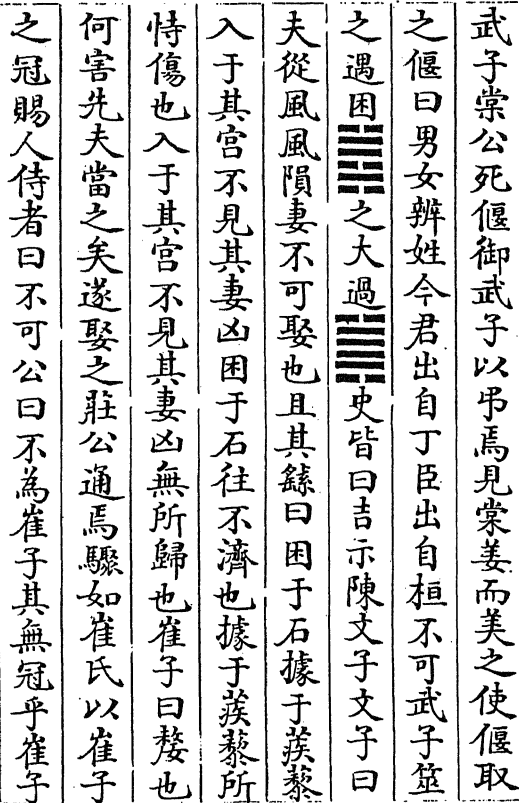 武子棠公死偃御武子以弔焉見棠姜而美之使偃取
之偃曰男女辨姓今君出自丁臣出自桓不可武子筮
之遇困䷮之大過䷛史皆曰吉示陳文子文子曰
夫從風風隕妻不可娶也且其繇曰困于石據于蒺藜
入于其宮不見其妻凶困于石往不濟也據于蒺藜所
恃傷也入于其宮不見其妻凶無所歸也崔子曰嫠也
何害先夫當之矣遂娶之莊公通焉驟如崔氏以崔子
之冠賜人侍者曰不可公曰不為崔子其無冠乎崔子